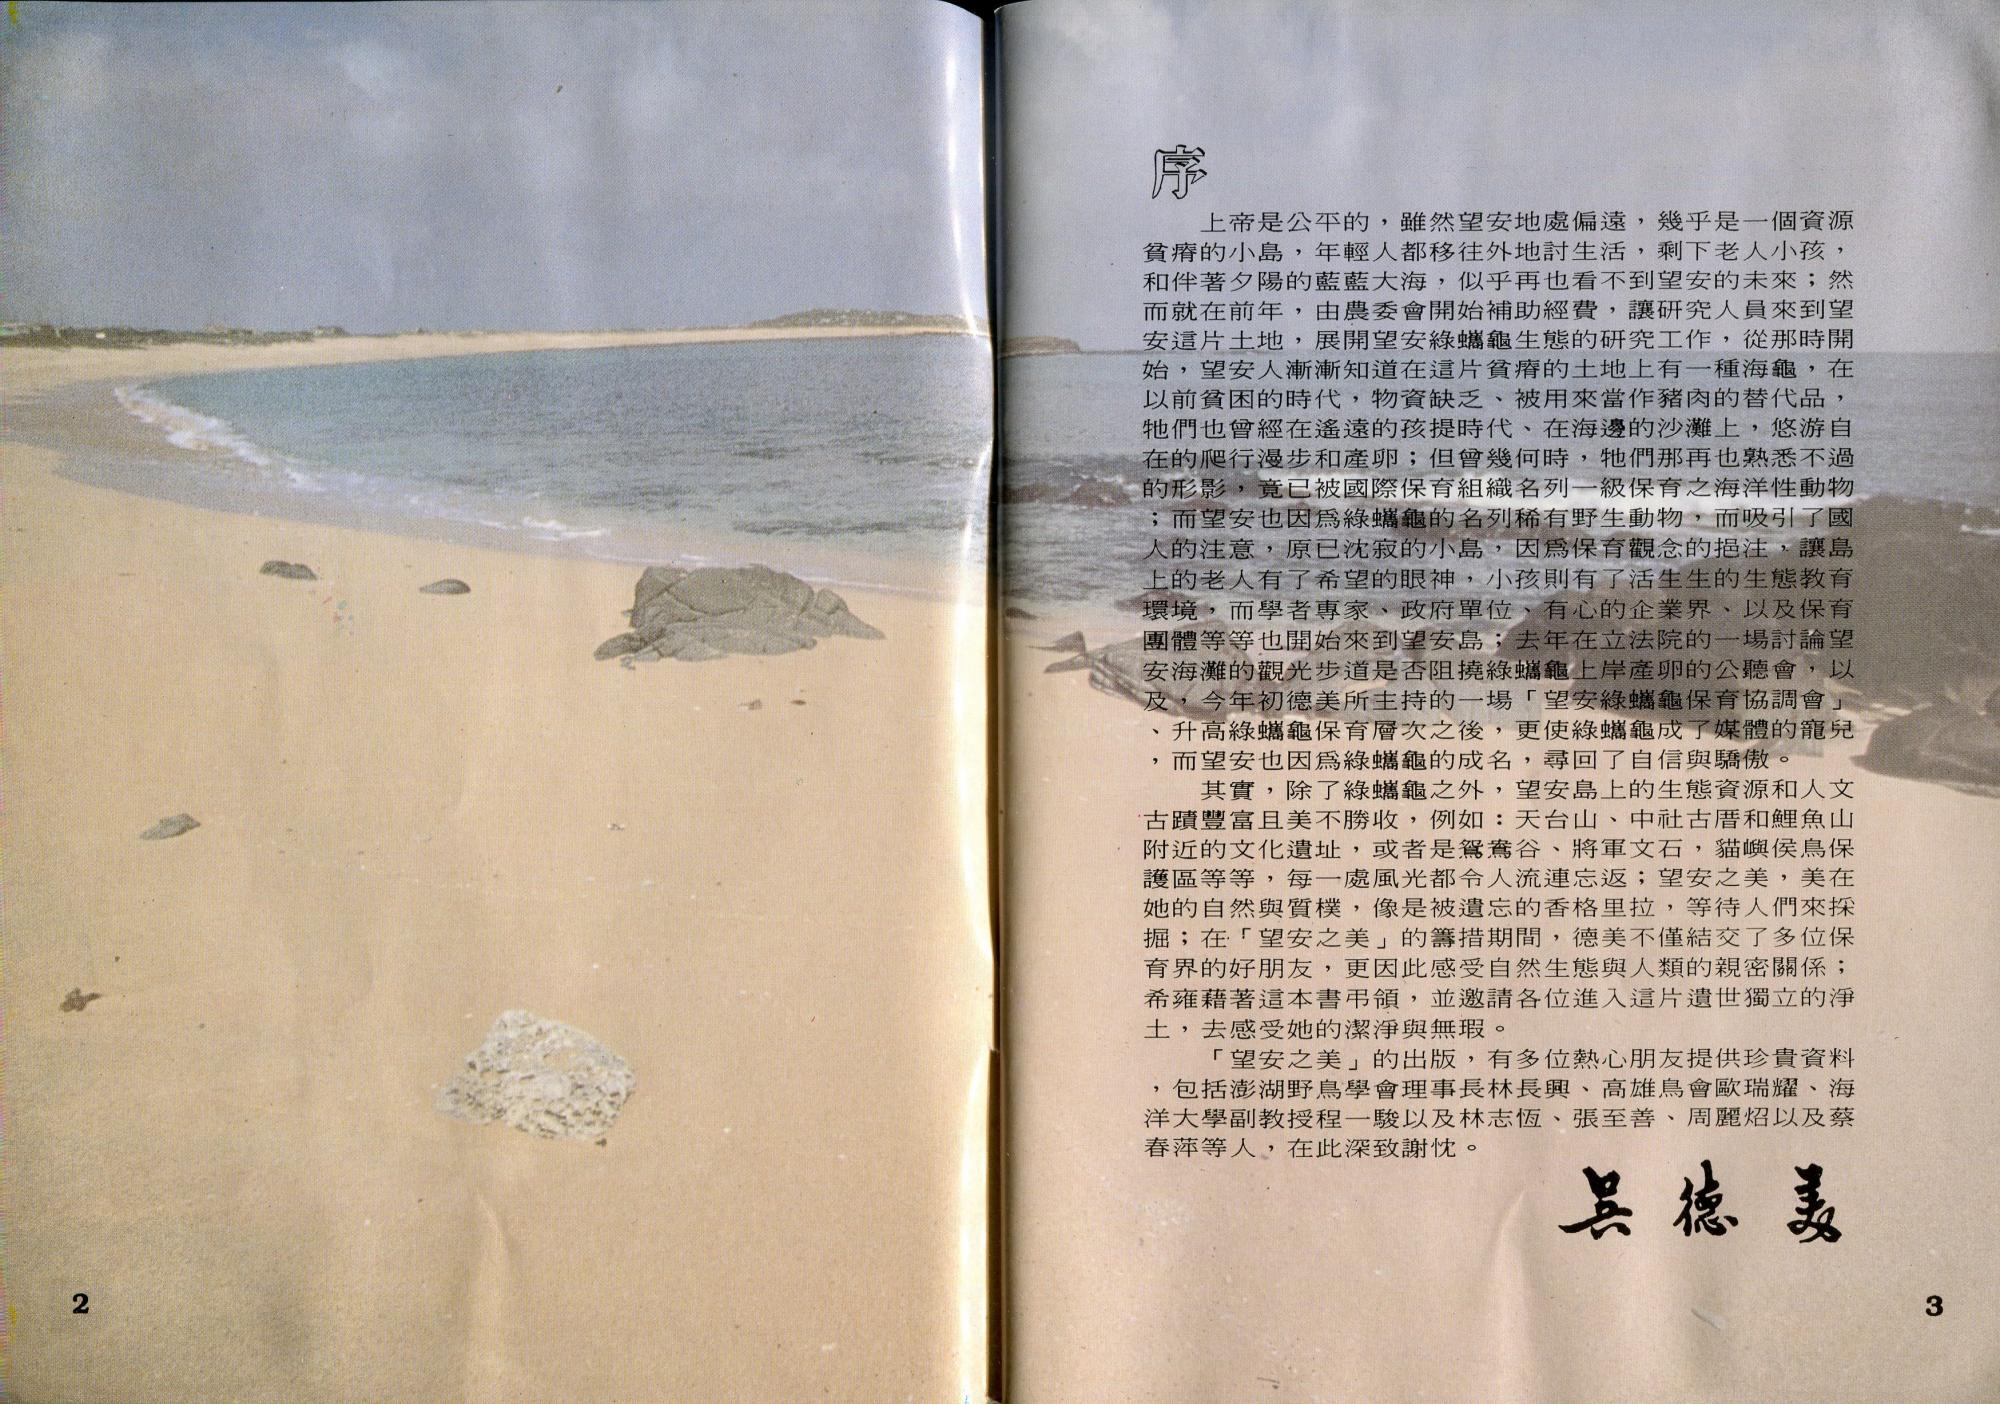 序
上帝是公平的，雖然望安地處偏遠，幾乎是一個資源
貧瘠的小島，年輕人都移往外地討生活，剩下老人小孩，
和伴著夕陽的藍藍大海，似乎再也看不到望安的未來；然
而就在前年，由農委會開始補助經費，讓研究人員來到望
安這片土地，展開望安綠蠵龜生態的研究工作，從那時開
始，望安人漸漸知道在這片貧瘠的土地上有一種海龜，在
以前貧困的時代，物資缺乏、被用來當作豬肉的替代品，
牠們也曾經在遙遠的孩提時代、在海邊的沙灘上，悠游自
在的爬行漫步和產卵；但曾幾何時，牠們那再也熟悉不過
的形影，竟已被國際保育組織名列一級保育之海洋性動物
；而望安也因爲綠蠵龜的名列稀有野生動物，而吸引了國
人的注意，原已沈寂的小島，因爲保育觀念的挹注，讓島
上的老人有了希望的眼神，小孩則有了活生生的生態教育
環境，而學者專家、政府單位、有心的企業界、以及保育
團體等等也開始來到望安島；去年在立法院的一場討論望
安海灘的觀光步道是否阻撓綠蠵龜上岸產卵的公聽會，以
及，今年初德美所主持的一場「望安綠蠵龜保育協調會」
、升高綠蠵龜保育層次之後，更使綠蠵龜成了媒體的寵兒
，而望安也因爲綠蠵龜的成名，尋回了自信與驕傲。
其實，除了綠蠵龜之外，望安島上的生態資源和人文
古蹟豐富且美不勝收，例如：天台山、中社古厝和鯉魚山
附近的文化遺址，或者是鴛鴦谷、將軍文石，貓嶼侯鳥保
護區等等，每一處風光都令人流連忘返；望安之美，美在
她的自然與質樸，像是被遺忘的香格里拉，等待人們來採
掘；在「望安之美」的籌措期間，德美不僅結交了多位保
育界的好朋友，更因此感受自然生態與人類的親密關係；
希雍藉著這本書弔領，並邀請各位進入這片遺世獨立的淨
土，去感受她的潔淨與無瑕。
「望安之美」的出版，有多位熱心朋友提供珍貴資料
，包括澎湖野鳥學會理事長林長興、高雄鳥會歐瑞耀、海
洋大學副教授程一駿以及林志恆、張至善、周麗炤以及蔡
春萍等人，在此深致謝忱。
吳德美
2
3